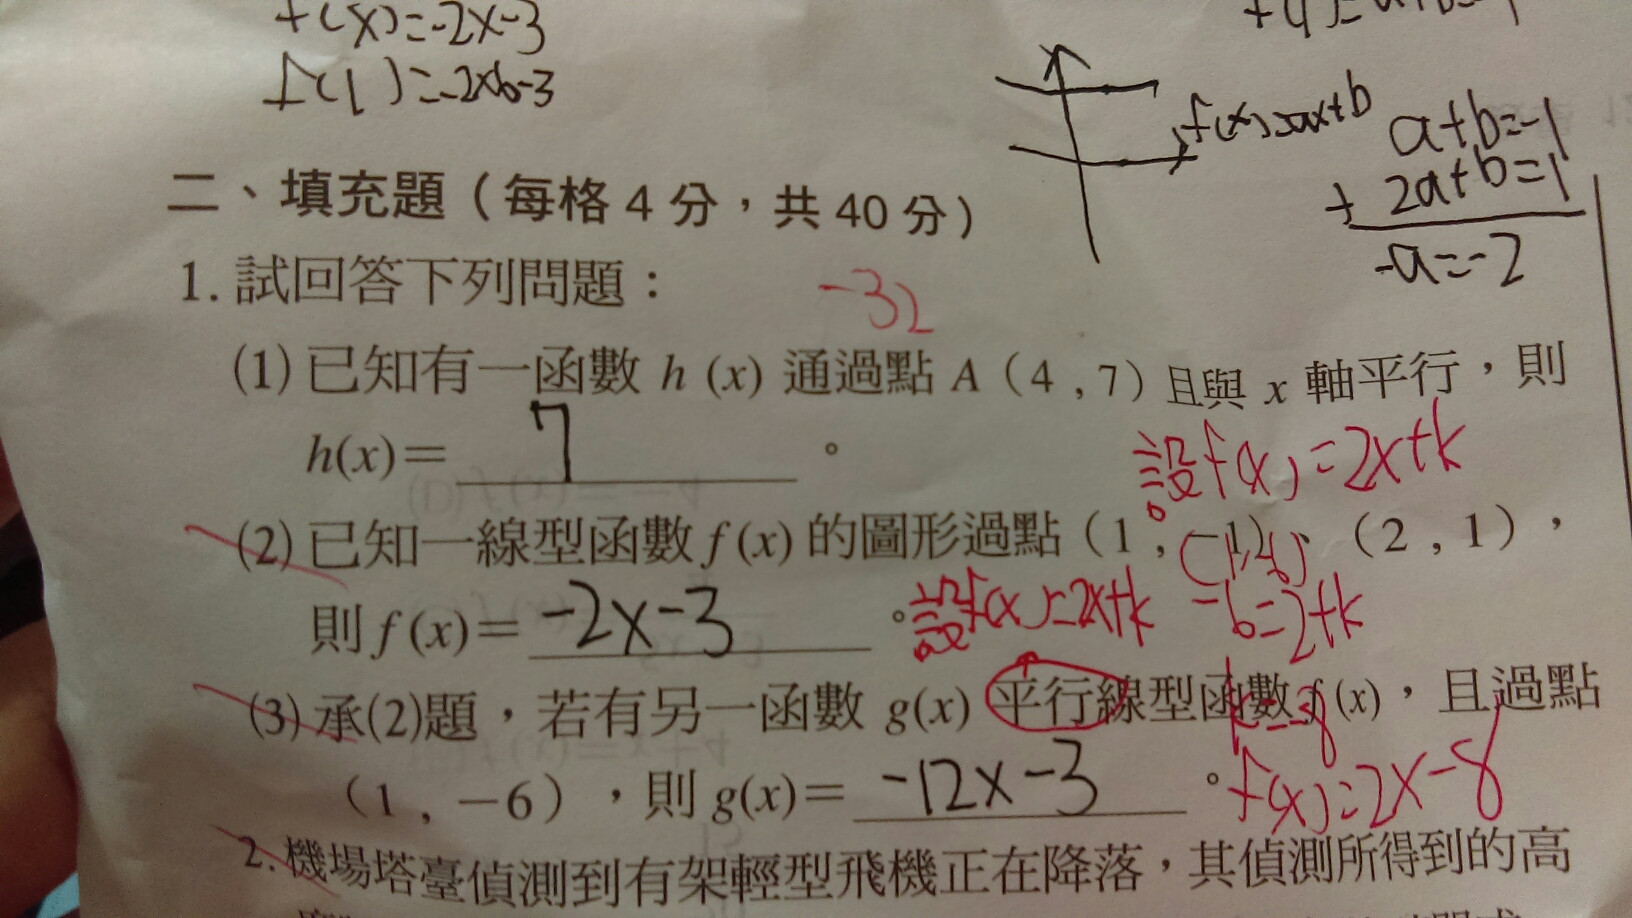 f(x)=-2x-3
f(1)=-2x6-3
f(x)=ax+b
a+b=-1
+ 2a+b=1
-a=-2
二、填充題（每格 4 分，共 40 分）
1. 試回答下列問題：
-32
(1) 已知有一函數 h (x) 通過點 A（4 , 7）且與 x 軸平行，則
h(x)= 7 。
設f(x)=2x+k
(2) 已知一線型函數 f (x) 的圖形過點（1 , －1）、（2 , 1），
則 f (x)= -2x-3 。
設f(x)=2x+k
-6=2+k
(3) 承(2)題，若有另一函數 g(x) 平行線型函數 f (x)，且過點
k=-8
（1 , －6），則 g(x)= -12x-3 。
f(x)=2x-8
2. 機場塔臺偵測到有架輕型飛機正在降落，其偵測所得到的高